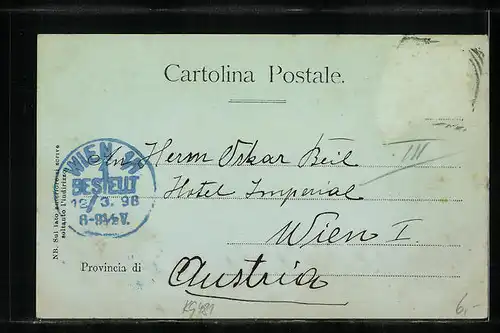 Cartolina Postale.
WIEN 1/1
BESTELLT
12/3.98
6-9½V.
An Herrn Oskar Beil
Hotel Imperial
Wien I.
Provincia di Austria
III
NB. Sul lato anteriore si scrive
soltanto l'indirizzo.
6,-